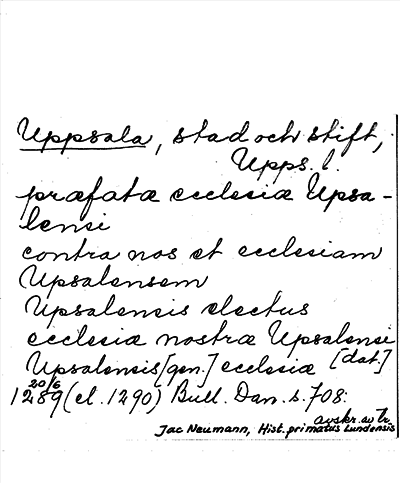 Uppsala, stad och stift,
Upps. l.
præfatæ ecclesiæ Upsa-
lensi
contra nos et ecclesiam
Upsalensem
Upsalensis electus
ecclesiæ nostræ Upsalensi
Upsalensis [gen.] ecclesiæ [dat.]
20/6
1289 (el. 1290) Bull. Dan. s. 708:
avskr. av Tr.
Jac Neumann, Hist. primatus Lundensis